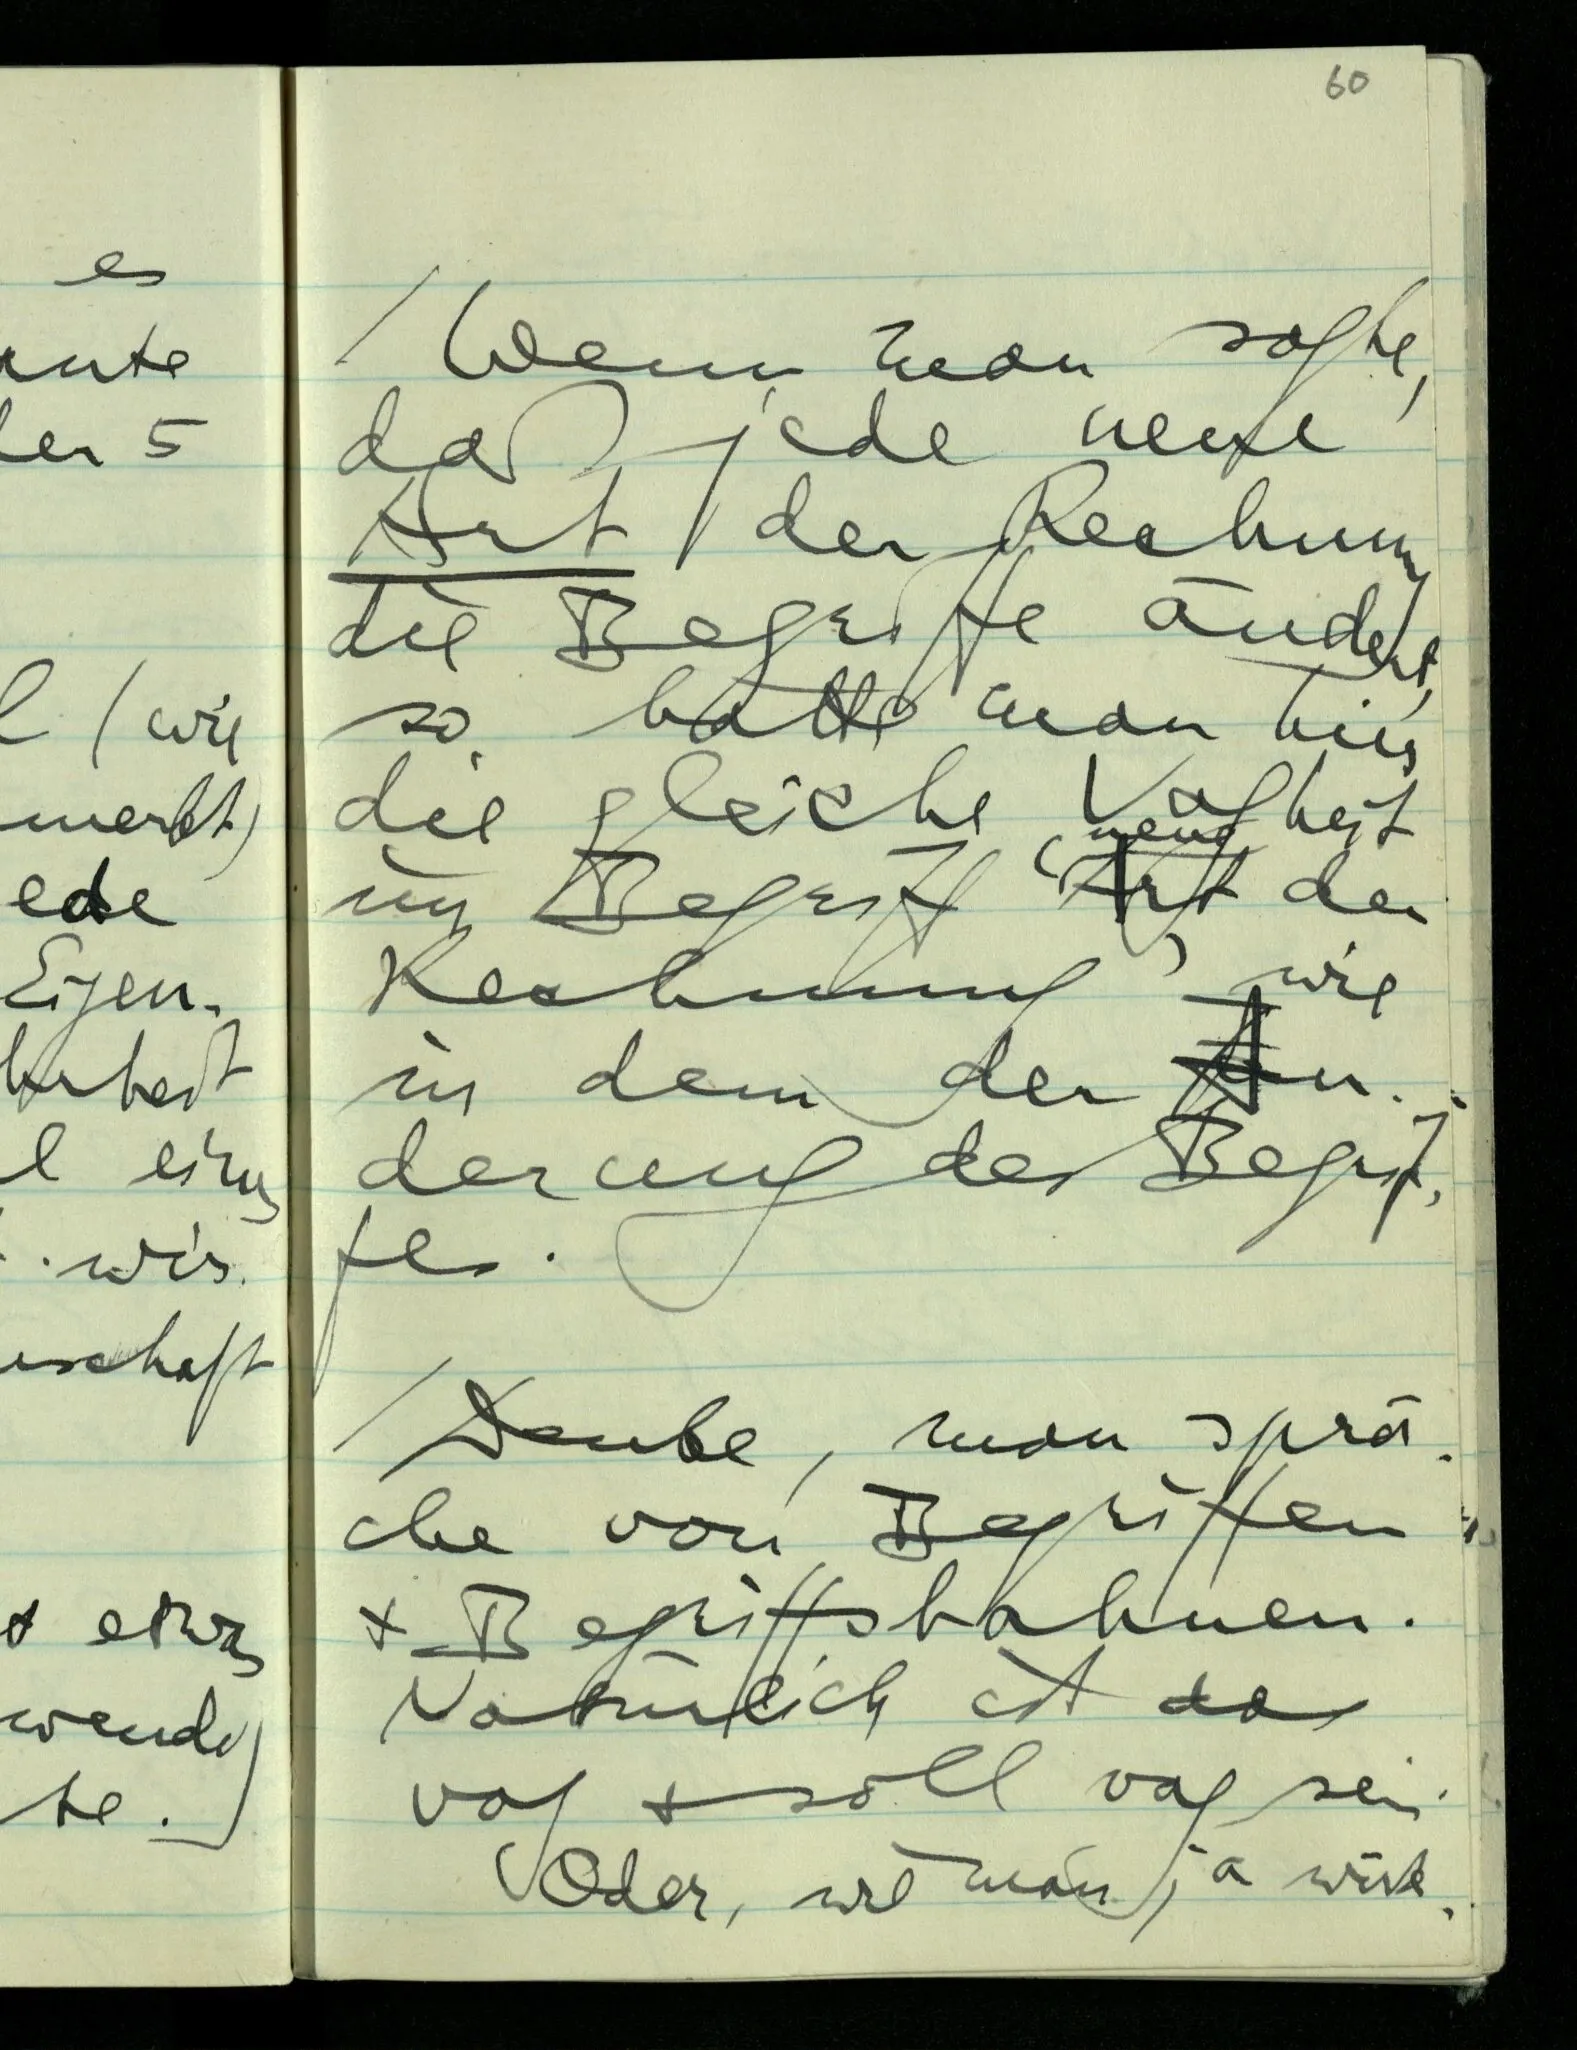 es
nnte
der 5
l (wie
merkt)
ede
Eigen-
barkeit
l eine
. wir
nschaft
etwas
wende
te.]
60
/ Wenn man sagte,
daß jede neue
Art der Rechnung
die Begriffe ändert,
so hätte man hier
die gleiche Vagheit
neue
im Begriff ‘Art der
Rechnung’, wie
in dem der Än-
derung des Begrif-
fes.
/ Denke, man sprä-
che von Begriffen
+ Begriffsbahnen.
Natürlich ist das
vag + soll vag sein.
Oder, wie man ja wirk-